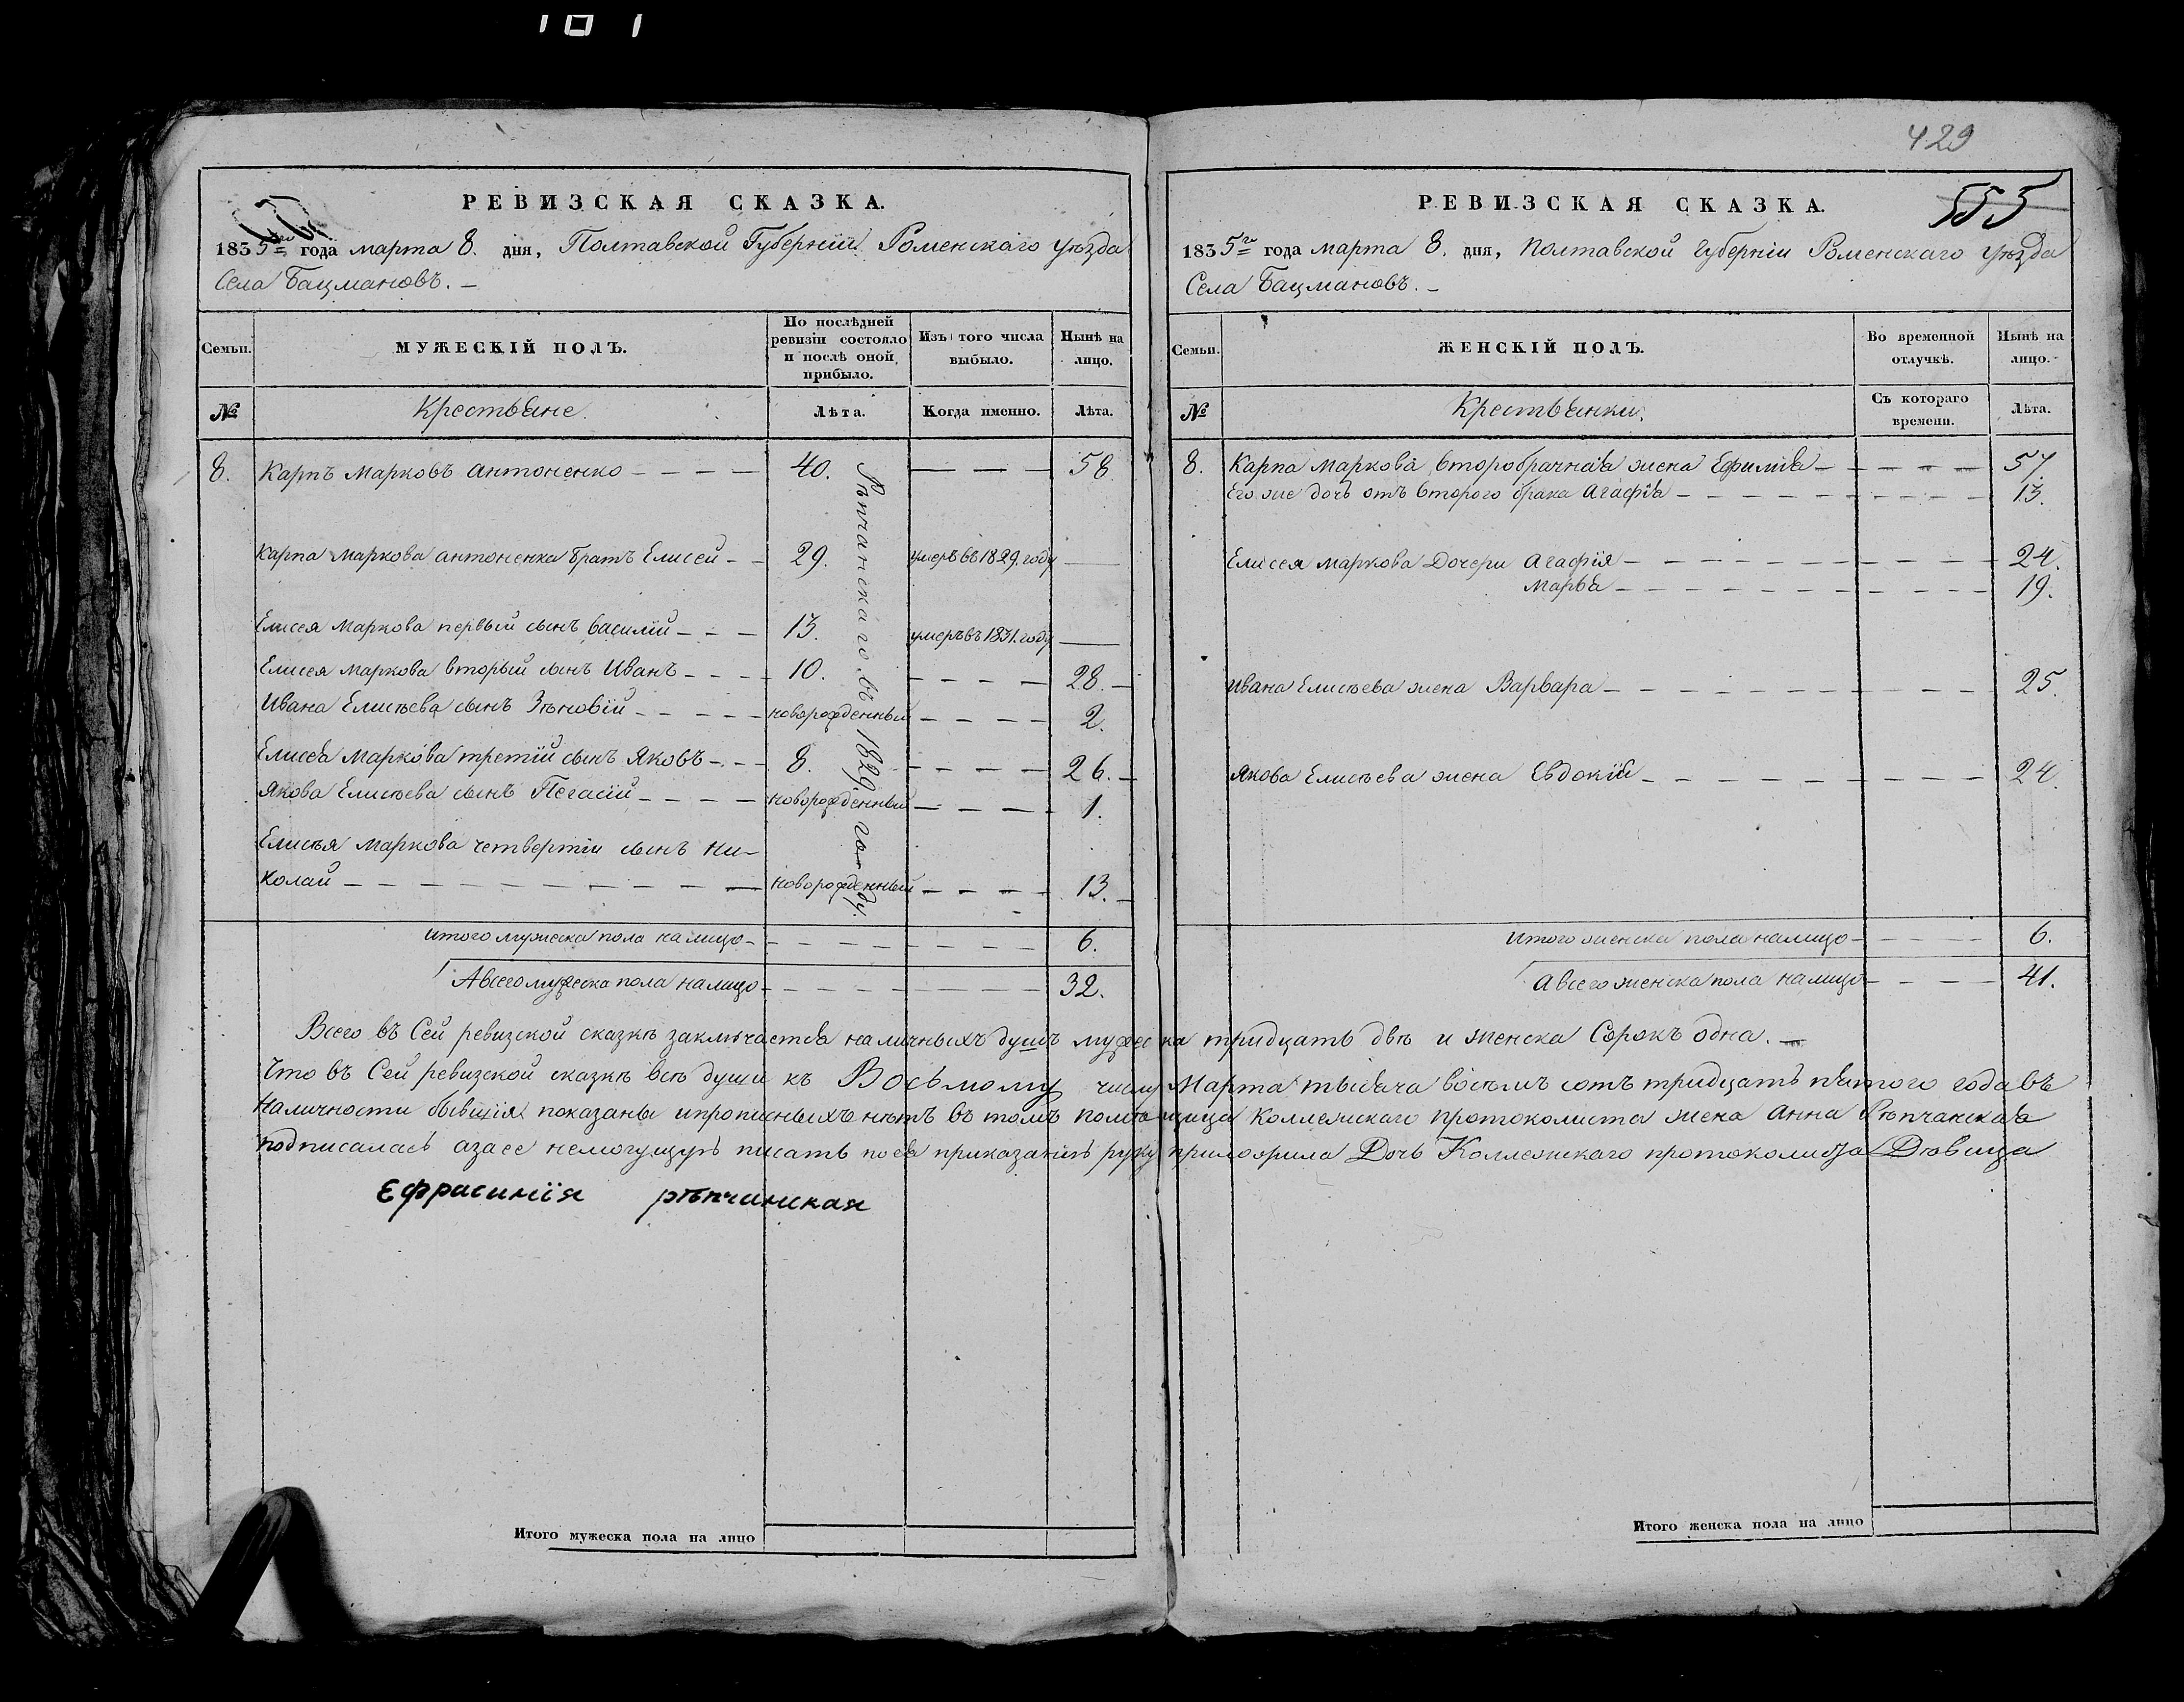 РЕВИЗСКАЯ СКАЗКА.
1835го года марта 8. дня, Полтавской Губерніи Роменскаго уѣзда
Села Бацмановъ. —
Семьи.
МУЖЕСКІЙ ПОЛЪ.
По послѣдней ревизіи состояло и послѣ оной, прибыло.
Изъ того числа выбыло.
Нынѣ на лицо.
№
Крестьяне.
Лѣта.
Когда именно.
Лѣта.
8. Карпъ Марковъ антоненко — — — — 40. — — — 58
Карпа Маркова антоненка братъ Елисей — — 29. умеръ въ 1829. году —
Елисея Маркова первый сынъ василій — — — 13. умеръ въ 1831. году —
Елисея Маркова вторый сынъ Иванъ — — — 10. — — — — 28. —
Ивана Елисѣева сынъ Зѣновій — — — — новорожденный — — — — 2.
Елисея Маркова третій сынъ Яковъ — — — 8. — — — — 26. —
Якова Елисѣева сынъ Пегасій — — — — новорожденный — — — — 1.
Елисѣя Маркова четвертій сынъ Ни-
колай — — — — — — — — новорожденный — — — — 13. —
въ 1829. го-ду.
итого мужеска пола на лицо — — — — — — 6.
А всего мужеска пола на лицо — — — — — — 32.
429
555
РЕВИЗСКАЯ СКАЗКА.
1835го года марта 8. дня, Полтавской Губерніи Роменскаго уѣзда
Села Бацмановъ. —
Семьи.
ЖЕНСКІЙ ПОЛЪ.
Во временной отлучкѣ.
Нынѣ на лицо.
№
Крестьянки.
Съ котораго времени.
Лѣта.
8. Карпа Маркова второбрачная жена Ефимія — — — — — 57.
Его же дочь отъ второго брака Агафія — — — — — — — 13.
Елисея Маркова Дочери Агафія — — — — — — — 24.
Марья — — — — — — — 19.
Ивана Елисѣева жена Варвара — — — — — — — 25.
Якова Елисѣева жена Евдокія — — — — — — — 24.
Итого женска пола на лицо — — — — 6.
А всего женска пола на лицо — — — — 41.
Всего въ Сей ревизской сказкѣ заключается наличныхъ душъ мужеска тридцать двѣ и женска Сорокъ одна. —
Что въ Сей ревизской сказкѣ всѣ души къ Восьмому числу Марта тысяча восѣмъ сотъ тридцать пятого года въ
Наличности бывшія показаны и прописныхъ нѣтъ въ томъ помѣщица Коллежскаго протоколиста жена Анна Рѣпчанская
подписалась а за ее немогущую писать по ея приказанію руку приложила Дочь Коллежскаго протоколиста Дѣвица
Ефрасинія рѣпчинская
Итого мужеска пола на лицо
Итого женска пола на лицо